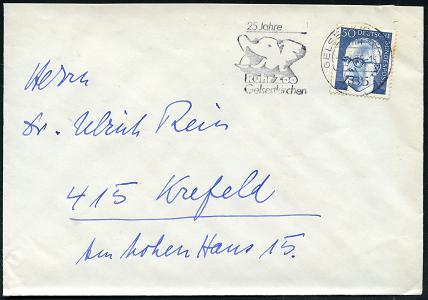 25 Jahre
Ruhr-Zoo
Gelsenkirchen
50 DEUTSCHE BUNDESPOST
GELSENKIRCHEN
Herrn
Dr. Ulrich Rein
415 Krefeld
Am hohen Haus 15.